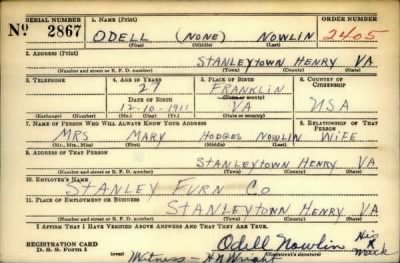 SERIAL NUMBER 1. NAME (Print) ORDER NUMBER
No 2867 ODELL (NONE) NOWLIN 2405
(First) (Middle) (Last)
2. ADDRESS (Print)
STANLEYTOWN HENRY VA
(Number and street or R. F. D. number) (Town) (County) (State)
3. TELEPHONE 4. AGE IN YEARS 5. PLACE OF BIRTH 6. COUNTRY OF CITIZENSHIP
27 FRANKLIN
DATE OF BIRTH (Town or county)
12-10-1911 VA USA
(Exchange) (No.) (Mo.) (Day) (Yr.) (State or country)
7. NAME OF PERSON WHO WILL ALWAYS KNOW YOUR ADDRESS 8. RELATIONSHIP OF THAT PERSON
MRS MARY HODGES NOWLIN WIFE
(Mr., Mrs., Miss) (First) (Middle) (Last)
9. ADDRESS OF THAT PERSON
STANLEYTOWN HENRY VA
(Number and street or R. F. D. number) (Town) (County) (State)
10. EMPLOYER'S NAME
STANLEY FURN CO
11. PLACE OF EMPLOYMENT OR BUSINESS
STANLEYTOWN HENRY VA
(Number and street or R. F. D. number) (Town) (County) (State)
I AFFIRM THAT I HAVE VERIFIED ABOVE ANSWERS AND THAT THEY ARE TRUE.
Odell Nowlin His X Mark
REGISTRATION CARD
D. S. S. Form 1 (Registrant's signature)
(over) Witness - Wright